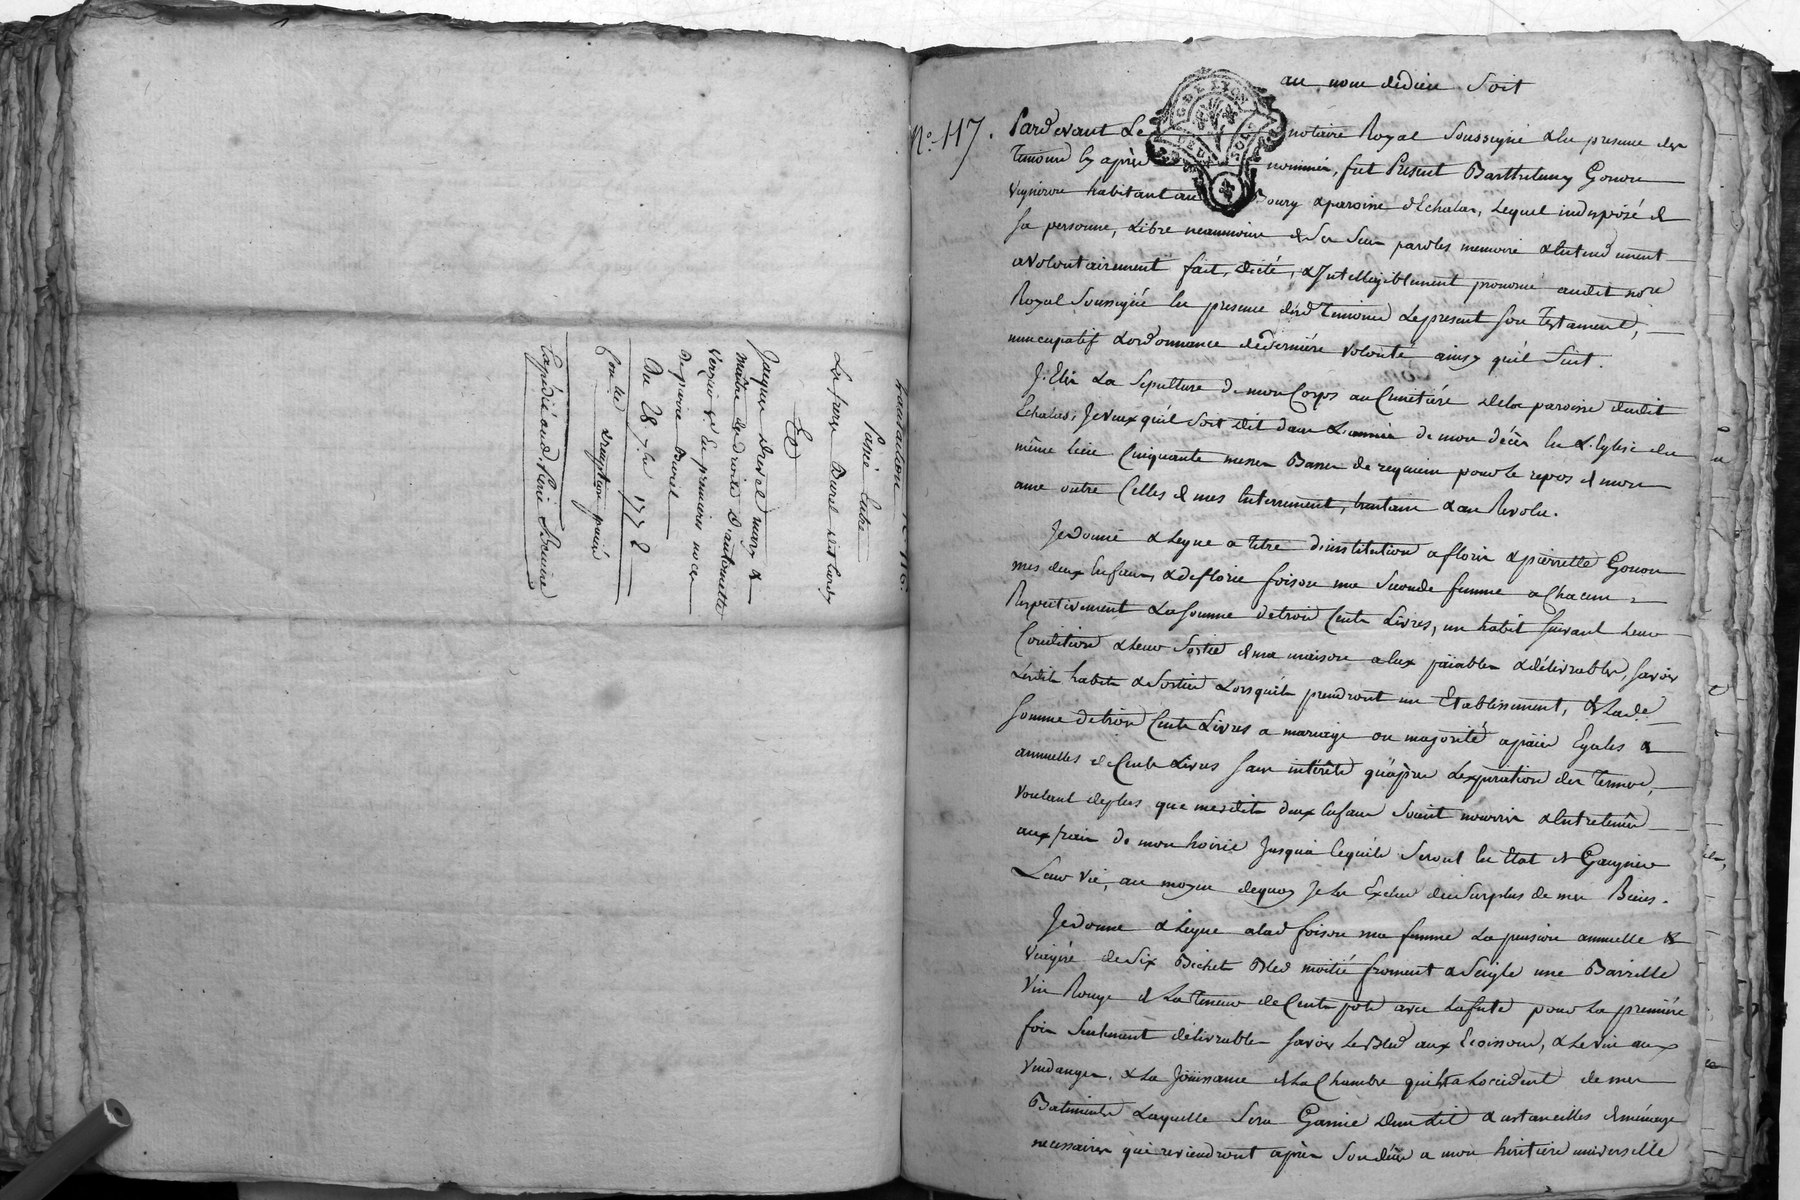 Vandation N° 116.
Passée Entre
Les freres Burel dit
Et
Jacques Dreval mary &
maître des droits d'antoinette
Verzieu Vve En premieres noces
de pierre Burel
Du 28 7bre 1772
Con^lle & reception
Expédié aud. Pierre
G. DE LYON
DEUX SOLS
au nom de dieu Soit
N°. 117.
Pardevant Le notaire Royal Soussigné & En presence des
Temoins Cy après nommés, fut Présent Barthelemy Gonon
vigneron habitant au Boury & paroisse d'Echalas, Lequel indisposé de
sa personne, Libre neanmoins de Ses Sens paroles memoire & Entendement
a volontairement fait, dicté, & Intelligiblement prononcé audit nore
Royal Soussigné En presence desd Temoins Le present Son Testament,
nuncupatif & ordonnance de dernière volonté ainsy qu'il Suit.
J'Elis La Sepulture de mon Corps au Cimetière de la paroisse dudit
Echalas; Je veux qu'il Soit dit dans L'année de mon décès En L'Eglise du
même lieu Cinquante messes Basses de requiem pour le repos de mon
ame outre Celles de mes Enterrement, trentain & an Revolu.
Je donne & Legue a titre d'institution a florie & pierrette Gonon
mes deux Enfans, & de florie foison ma Seconde femme a Chacune
Respectivement La Somme de trois Cents Livres, un habit Suivant Leur
Condition & Leur Sortie de ma maison a Eux païables & délivrables, Savoir
Lesdits habits & Sortie Lorsquels prendront un Etablissement, & Lade
Somme de trois Cents Livres a mariage ou majorité a païes Egales &
annuelles de Cents Livres Sans intérêts qu'après L'expiration des Termes,
voulant deplus que mesdits deux Enfans Soient nourris & Entretenus
aux frais de mon hoirie Jusqu'à Cequ'ils Seront En Etat de Gaygner
Leur vie, au moyen dequoy Je les Exclus du Surplus de mes Biens.
Je donne & Legue a lad foison ma femme La pension annuelle &
viagère de Six Bichets Bled moitié froment & Seigle une Barrille
Vin Rouge de La Teneur de Cents pots avec La fute pour La première
fois Seulement délivrables Savoir Le Bled aux & Le vin aux
Vendanges, & La Joüissance de La Chambre qui Est a L'occident de mes
Batiments Laquelle Sera Garnie d'un Lit & ustancilles de ménage
necessaires qui reviendront après Son décès a mon héritiere universelle